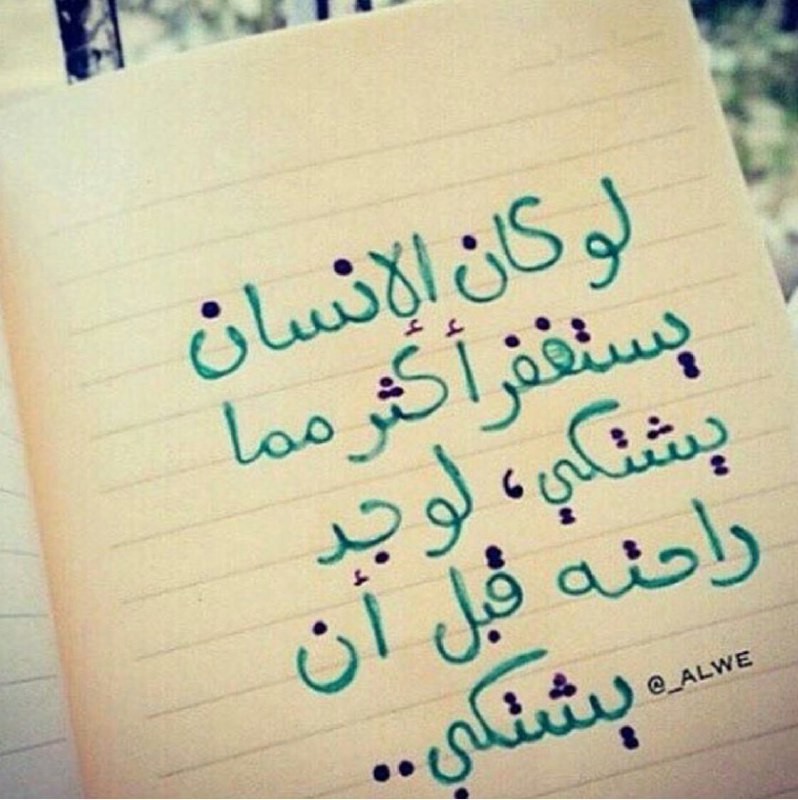 لو كان الانسان
يستغفر أكثر مما
يشتكي، لوجد
راحته قبل أن
يشتكي..
@_ALWE